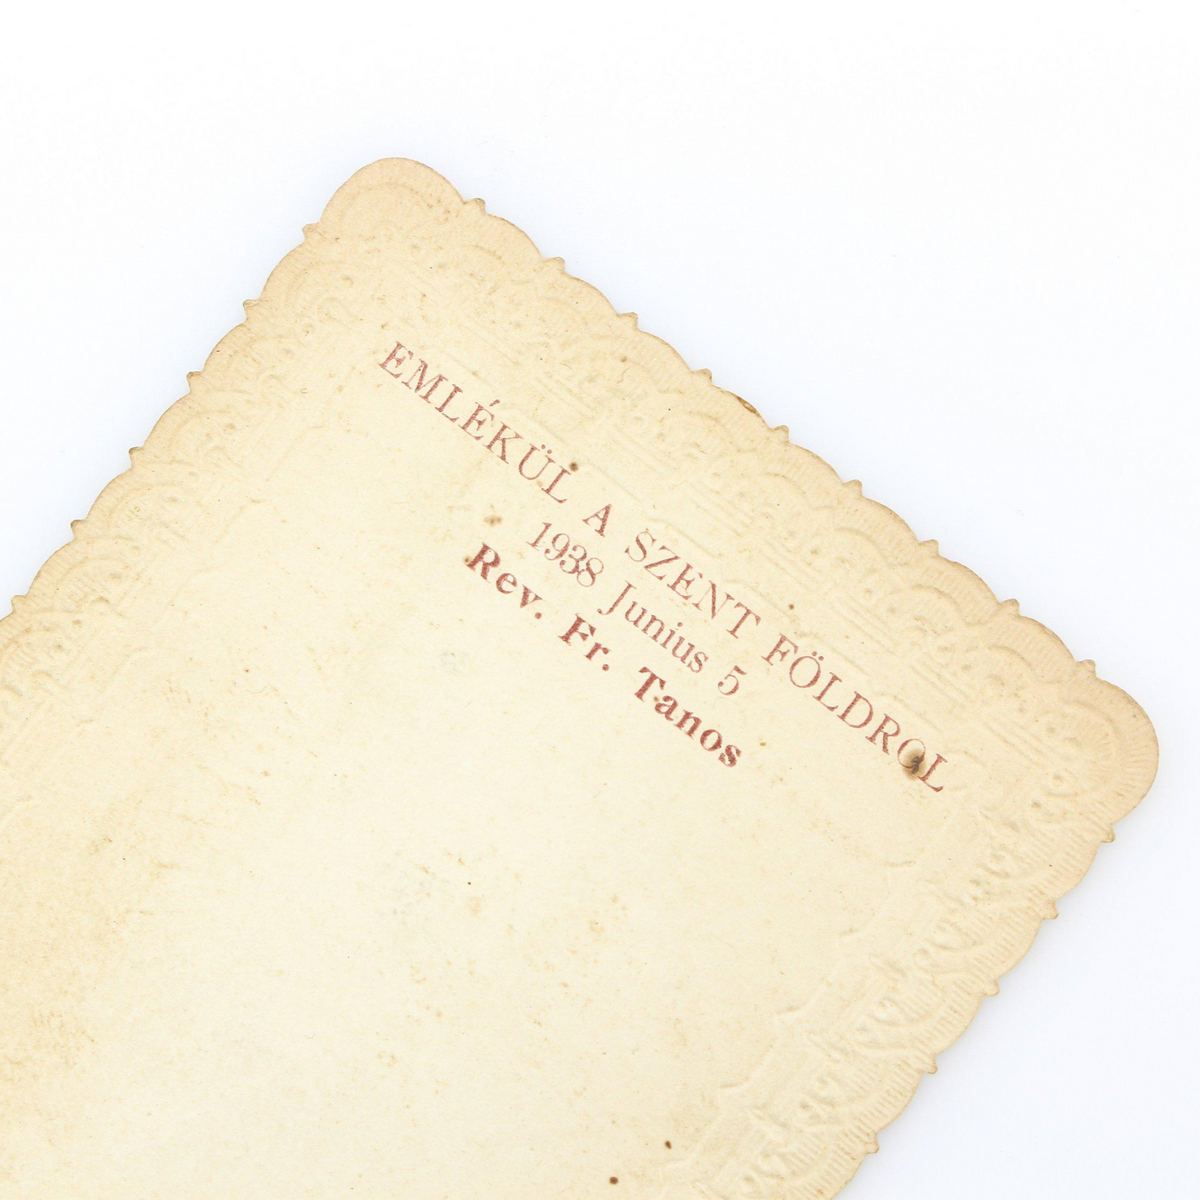 EMLÉKÜL A SZENT FÖLDROL
1938 Junius 5
Rev. Fr. Tanos